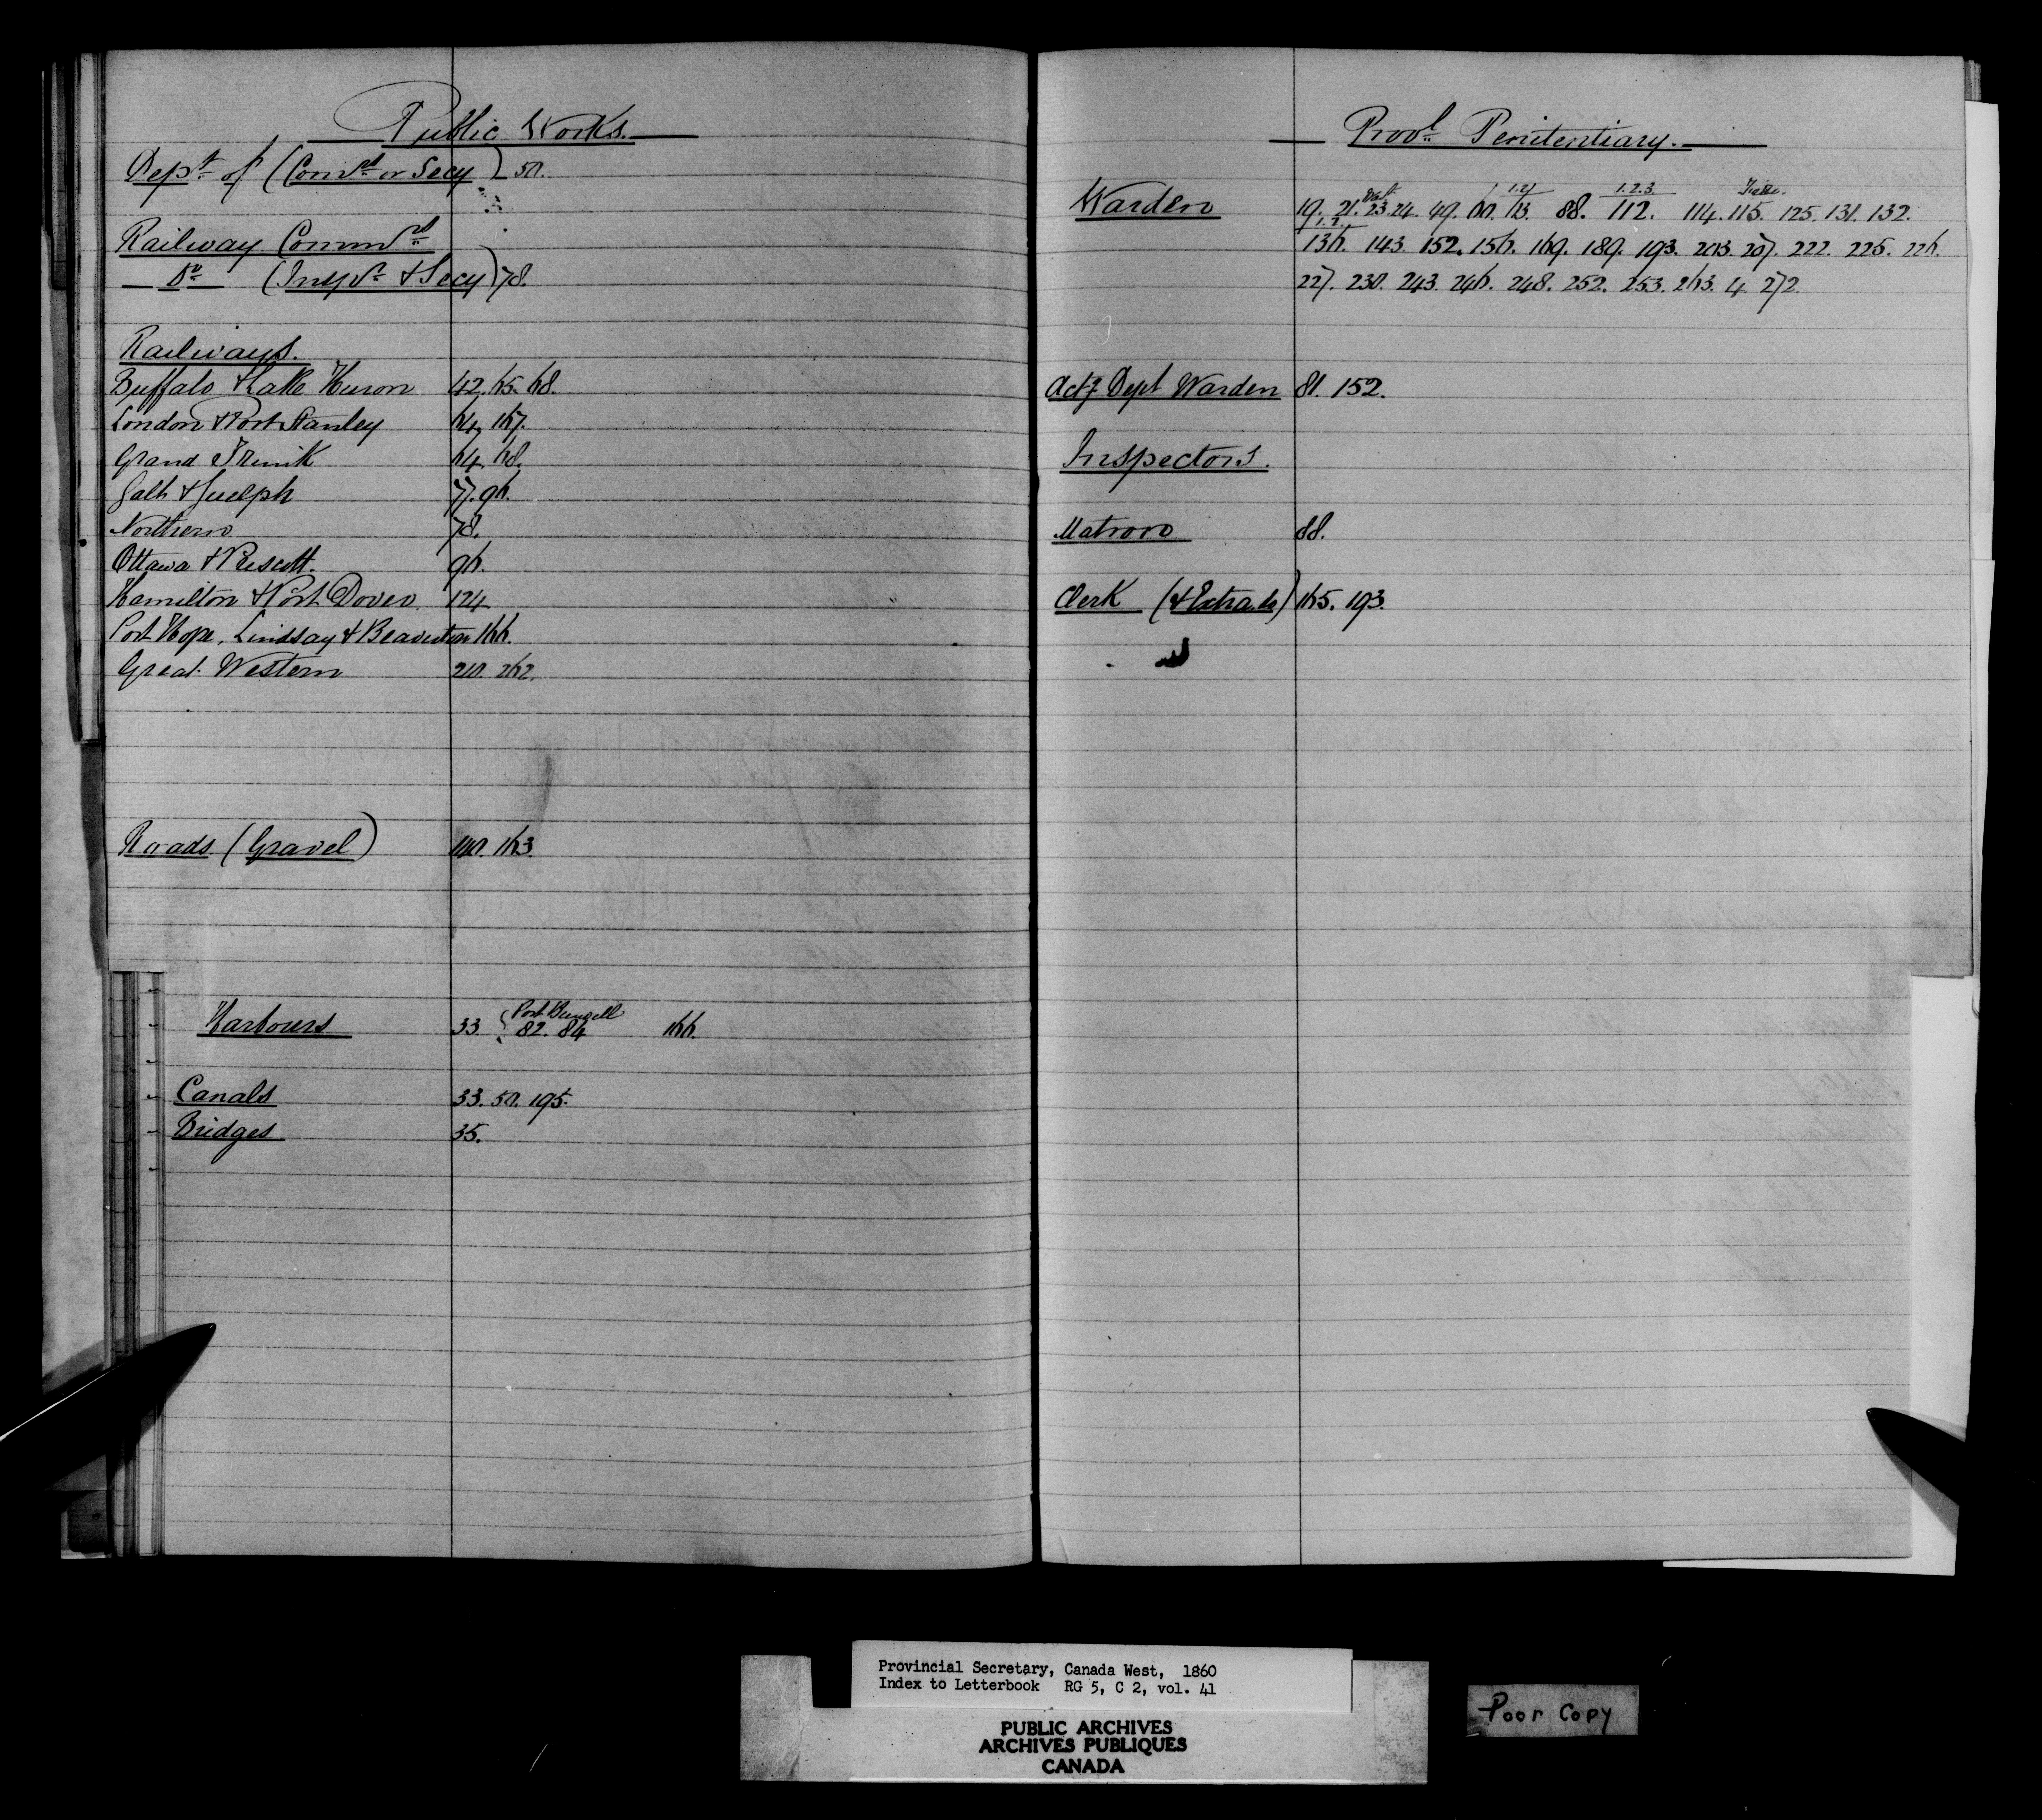 Public Works.
Dept of (Comrs or Secy) 50.
Railway Commrs
Do (Inspr & Secy) 78.
Railways.
Buffalo & Lake Huron 42. 65. 68.
London & Port Stanley 64. 167.
Grand Trunk 64. 68.
Galt & Guelph 77. 96.
Northern 78.
Ottawa & Prescott. 96.
Hamilton & Port Dover. 124
Port Hope, Lindsay & Beaverton 166.
Great Western 210. 262.
Roads (Gravel) 140. 163.
Port Burwell
Harbours 33. { 82. 84 166.
Canals 33. 50. 195.
Bridges 35.
Provl Penitentiary.
1.2 1.2.3
Warden 19. 21. 23. 24. 49. 60. 63. 88. 112. 114. 115. 125. 131. 132.
1.2.
136. 143. 152. 156. 169. 189. 193. 203. 207. 222. 225. 226.
227. 230. 243. 246. 248. 252. 253. 263. 4. 272.
Actg Dept Warden 81. 152.
Inspectors.
Matron 88.
Clerk (& Extra do) 165. 193.
Provincial Secretary, Canada West, 1860
Index to Letterbook RG 5, C 2, vol. 41
PUBLIC ARCHIVES
ARCHIVES PUBLIQUES
CANADA
Poor Copy